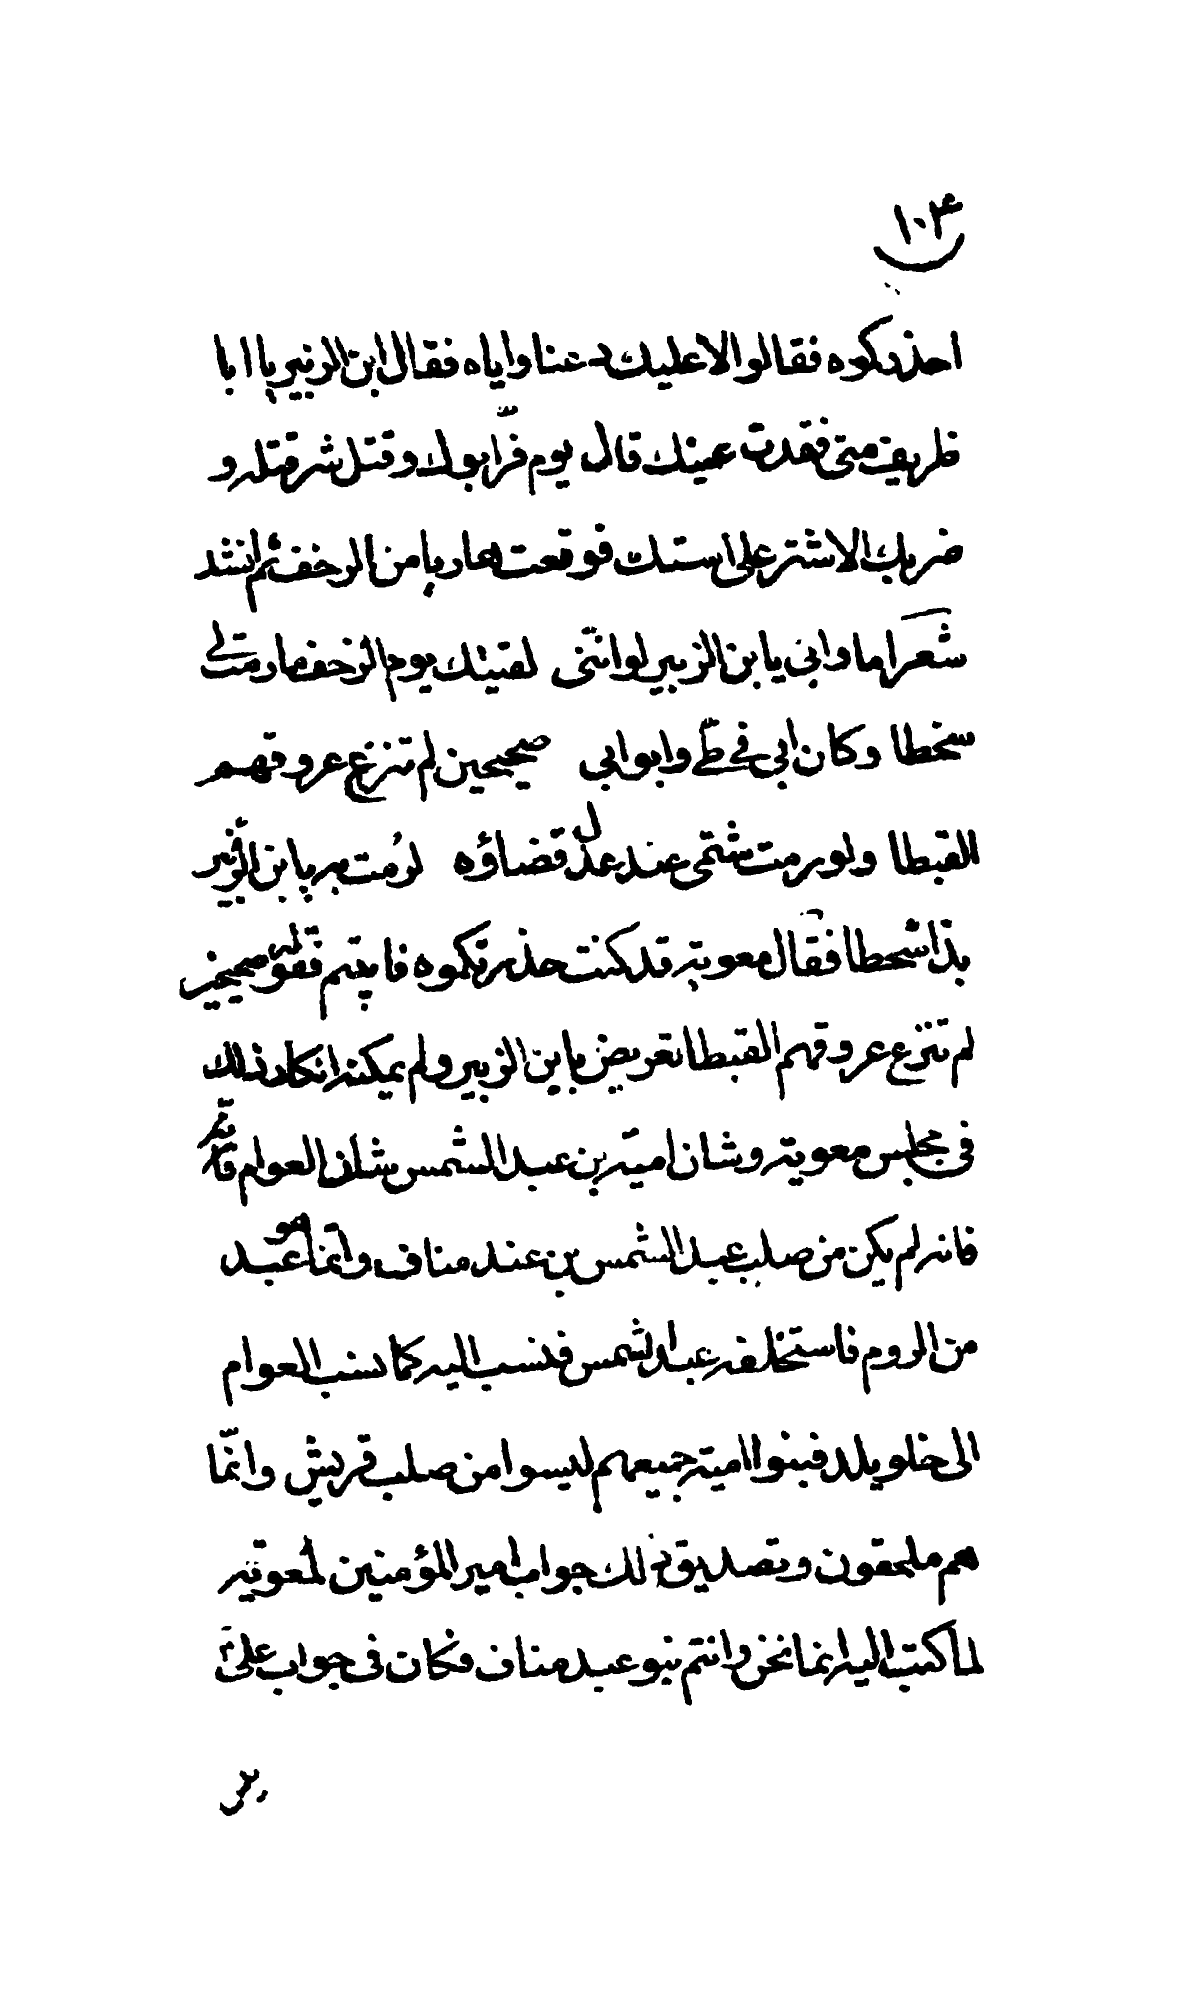 ١٠۴
احذركوه فقالوا لا عليك دعنا واياه فقال ابن الزبير يا ابا
طريف متى فقدت عينك قال يوم فرّ ابوك وقتل شر قتله و
ضربك الاشتر على استك فوقعت هاربا من الزحف ثم انشد
شعر اما وابي يا بن الزبير لو انني لقيتك يوم الزحف ما رمت لي
سخطا وكان ابي في طيّ وابو ابي صحيحين لم تنزع عروقهم
القبطا ولو رمت شتمي عند عدل قضاؤه لرمت به يا بن الزبير
بذا شحطا فقال معوية قد كنت حذرتكموه فابيتم فقوله صحيحين
لم تنزع عروقهم القبطا تعريض بابن الزبير ولم يمكنه انكار ذلك
في مجلس معوية وشان امية بن عبد الشمس شان العوام فانّه
فانه لم يكن من صلب عبد الشمس بن عبد مناف وانّما هو عبد
من الروم فاستخلفه عبد الشمس فنسب اليه كما نسب العوام
الى خلويلد فبنوا امية جميعهم ليسوا من صلب قريش وانّما
هم ملحقون وتصديق ذلك جواب امير المؤمنين لمعوية
لما كتب اليه انما نحن وانتم بنو عبد مناف فكان في جواب علي ؑ